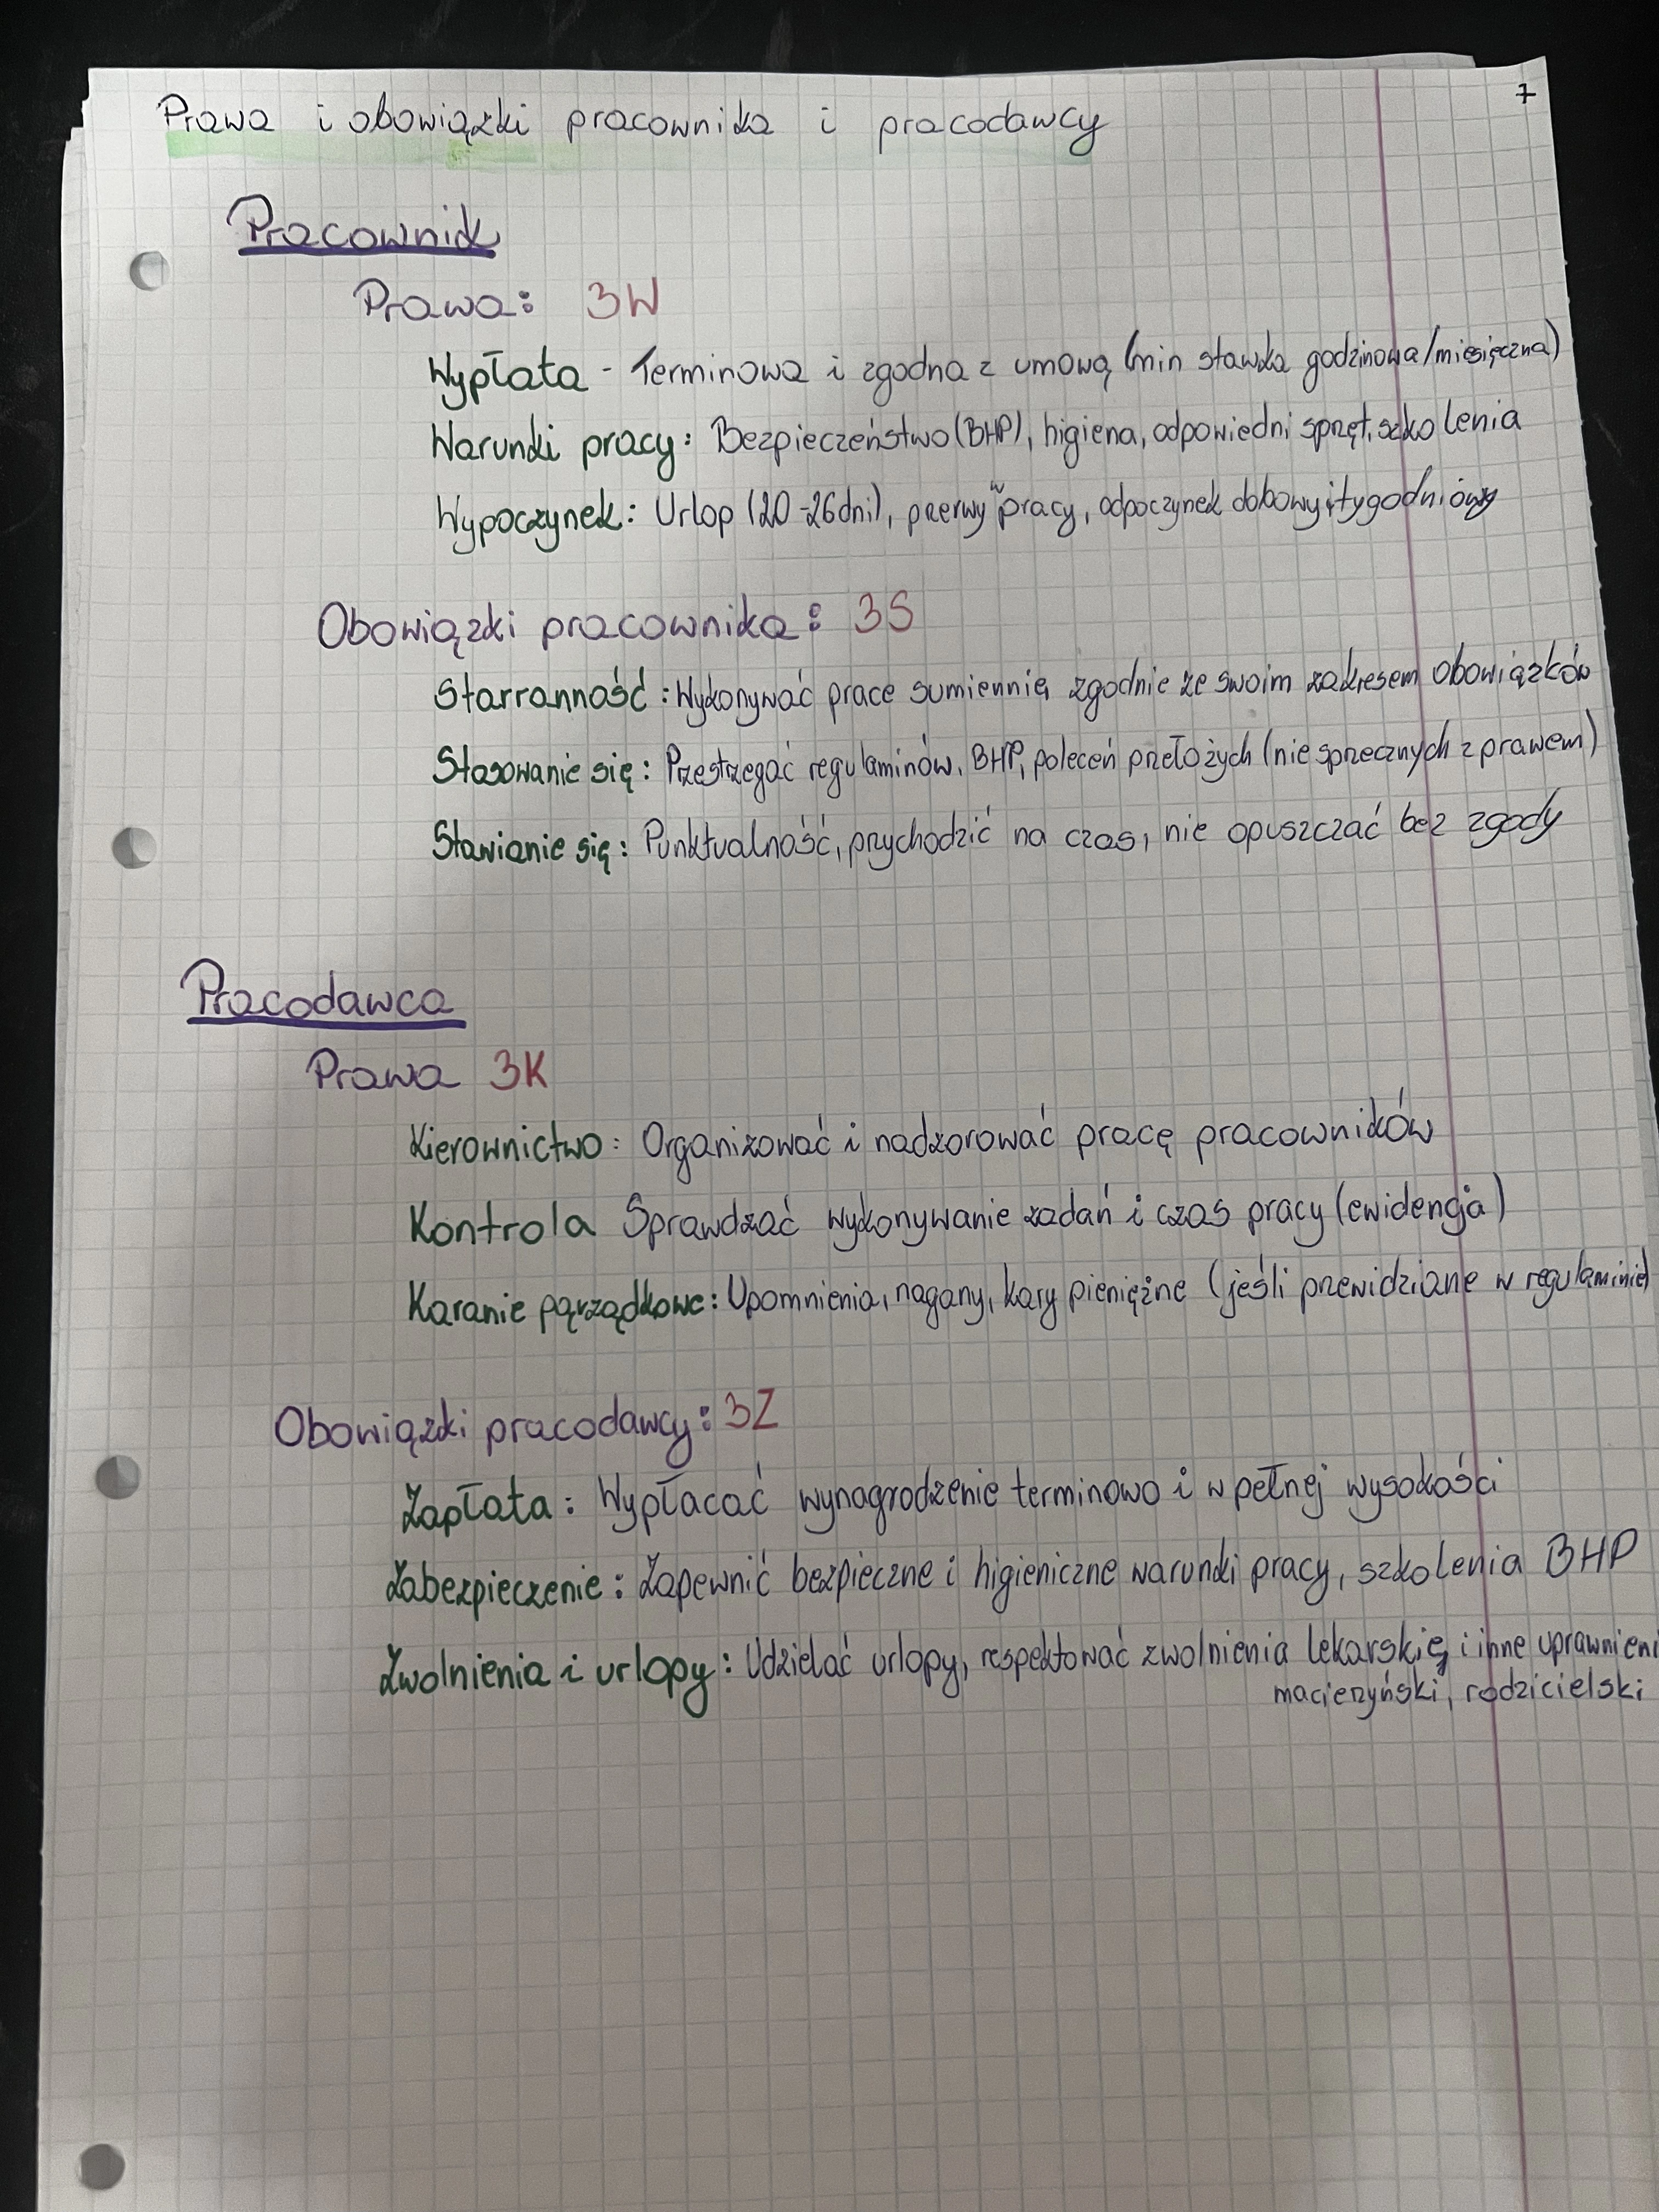 7
Prawa i obowiązki pracownika i pracodawcy
Pracownik
Prawa: 3W
Wypłata - Terminowa i zgodna z umową (min stawka godzinowa/miesięczna)
Warunki pracy: Bezpieczeństwo (BHP), higiena, odpowiedni sprzęt, szkolenia
Wypoczynek: Urlop (20-26dni), przerwy w pracy, odpoczynek dobowy i tygodniowy
Obowiązki pracownika: 3S
Starranność: Wykonywać prace sumiennie, zgodnie ze swoim zakresem obowiązków
Stosowanie się: Przestrzegać regulaminów, BHP, poleceń przełożych (nie sprzecznych z prawem)
Stawianie się: Punktualność, przychodzić na czas, nie opuszczać bez zgody
Pracodawca
Prawa 3K
Kierownictwo: Organizować i nadzorować pracę pracowników
Kontrola Sprawdzać wykonywanie zadań i czas pracy (ewidencja)
Karanie parządkowe: Upomnienia, nagany, kary pieniężne (jeśli przewidziane w regulaminie)
Obowiązki pracodawcy: 3Z
Zapłata: Wypłacać wynagrodzenie terminowo i w pełnej wysokości
Zabezpieczenie: Zapewnić bezpieczne i higieniczne warunki pracy, szkolenia BHP
Zwolnienia i urlopy: Udzielać urlopy, respektować zwolnienia lekarskie, i inne uprawnieni
macierzyński, rodzicielski